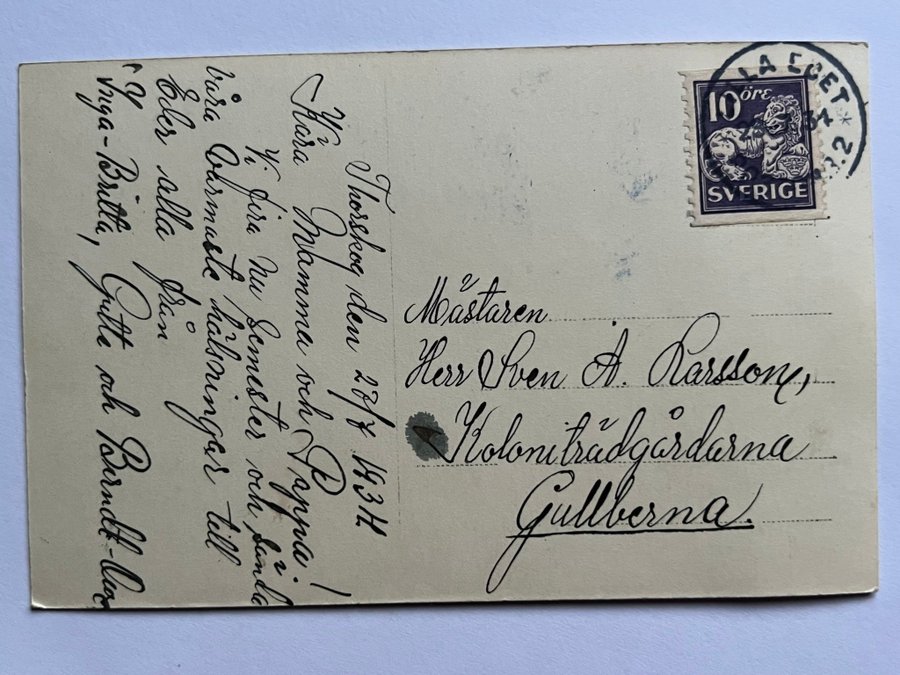 Thorskog den 23/7 1934
Kära Mamma och Pappa!
Vi fira nu semester och sända
våra varmaste hälsningar till
Eder alla från
Inga-Britta, Gutte och Berndt-
10 öre
SVERIGE
LLA EDET
34
Mästaren
Herr Sven A. Larsson,
Koloniträdgårdarna
Gullberna.